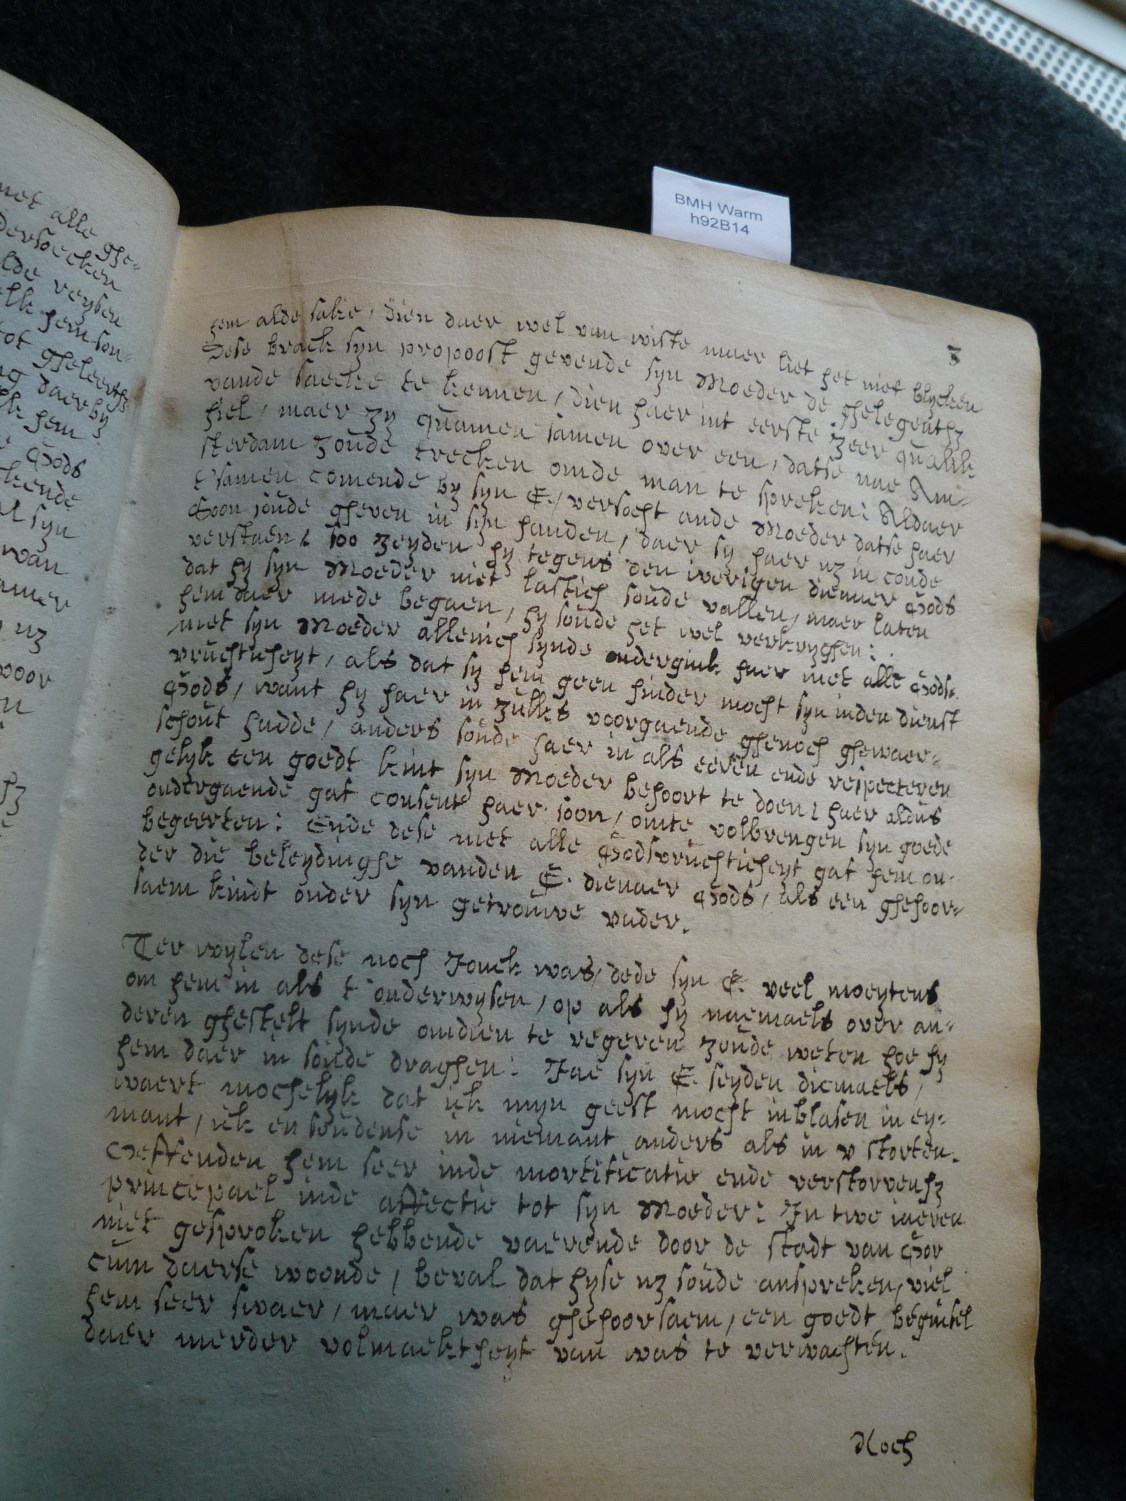 BMH Warm
h92B14
3
met alle ghe-
dersoecken
lde reysen
lk hem son-
tot gheleerths
ng daer by
lk hem
e Gods
kende
al syn
van
amer
n uz
voor
n
hem alde sake, dien daer wel van wiste maer liet het niet blycken
Dese brack syn propoost gevende syn Moeder de ghelegenthz
vande saecke te kennen, dien haer int eerste zeer qualik
fiel, maer zy quamen samen over een, datse nae Am-
sterdam zoude trecken omde man te spreken: Aldaer
t'samen comende by syn E., versocht ande Moeder datse haer
Soon soude gheven in syn handen, daer sy haer nz in coude
verstaen: soo zeyden hy tegens den iverigen dienaer Gods
dat hy syn Moeder niet lastich soude vallen, maer laten
hem daer mede begaen, hy soude het wel verkryghen:
met syn Moeder allenich synde ondergink haer met alle Gods-
vruchticheyt, als dat sy hem geen hinder mocht syn inden dienst
Gods, want hy haer in zulks voorgaende ghenoch ghewaer-
schout hadde, anders soude haer in als eeren ende respecteren
gelyk een goedt kint syn Moeder behoort te doen: haer aldus
ondergaende gaf consent haer soon, omte volbrengen syn goede
begeerten: Ende dese met alle Godsvruchticheyt gaf hem on-
der die beleydinghe vanden E. dienaer Gods, als een ghehoor-
saem kindt onder syn getrouwe vader.
Ter wylen dese noch Jonck was, dede syn E. veel moeytens
om hem in als t'onderwysen, op als hy naemaels over an-
deren ghestelt synde omdien te regeren zoude weten hoe hy
hem daer in soude draghen: Jae syn E. seyden dicmaels,
waert mochelyk dat ick myn geest mocht inblasen in ey-
mant, ick en soudense in niemant anders als in v storten.
Oeffenden hem seer inde mortificatie ende verstorvenhz
princepael inde affectie tot syn Moeder: In twe iaeren
niet gesproken hebbende vaerende door de stadt van Gor
cum daerse woonde, beval dat hyse nz soude anspreken, viel
hem seer swaer, maer was ghehoorsaem, een goedt beginsel
daer meerder volmaektheyt van was te verwachten.
Noch